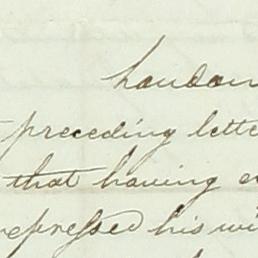 London
preceding lette
that having e
repressed his wi